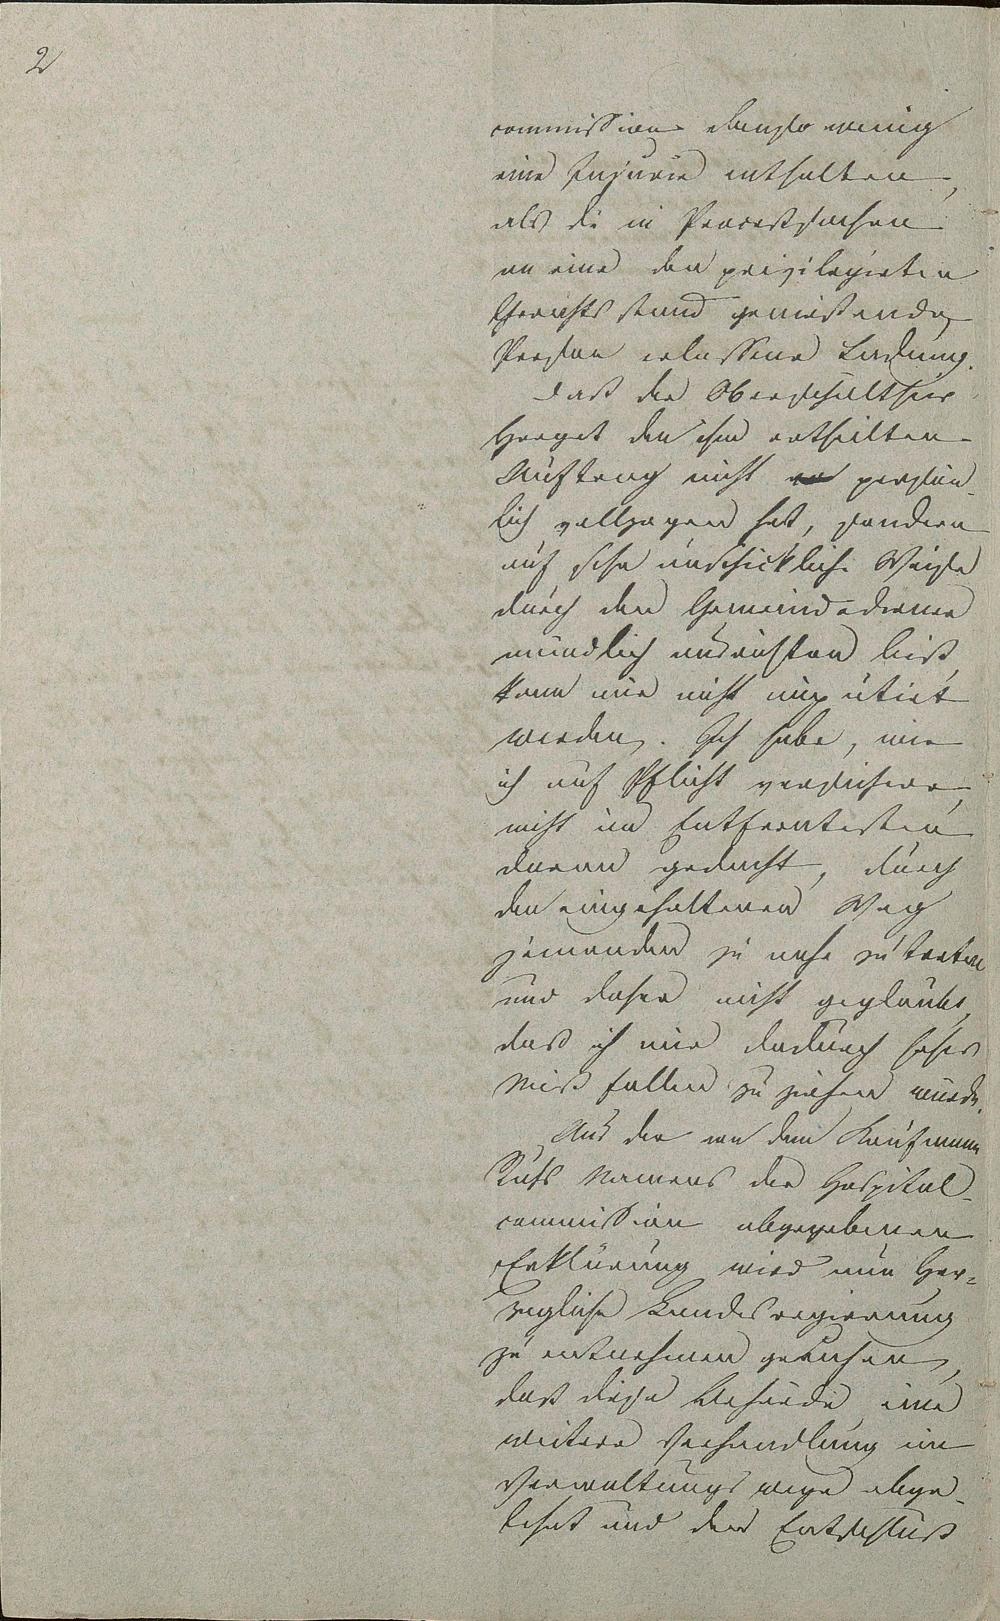 2
commission ebenso wenig
eine Injurie enthalten,
als die in Processsachen
an eine den privilegirten
Gerichtsstand genießende
Person erlassene Ladung.
Daß der Oberschultheis
Herget den ihm ertheilten
Auftrag nicht persön-
lich vollzogen hat, sondern
auf sehr unschickliche Weise
durch den Gemeindediener
mündlich ausrichten ließ,
kann mir nicht imputirt
werden. Ich habe, wie
ich auf Pflicht versichere,
nicht im Entferntesten
daran gedacht, durch
den eingehaltenen Weg
jemanden zu nahe zu treten
und daher nicht geglaubt,
daß ich mir dadurch hohes
Mißfallen zu ziehen würde.
Aus der von dem Kaufmann
Namens der Hospital-
commission abgegebenen
Erklärung wird nun Her-
zogliche Landesregierung
zu entnehmen geruhen,
daß diese Behörde eine
weitere Verhandlung im
Verwaltungswege abge-
lehnt und den Entschluß